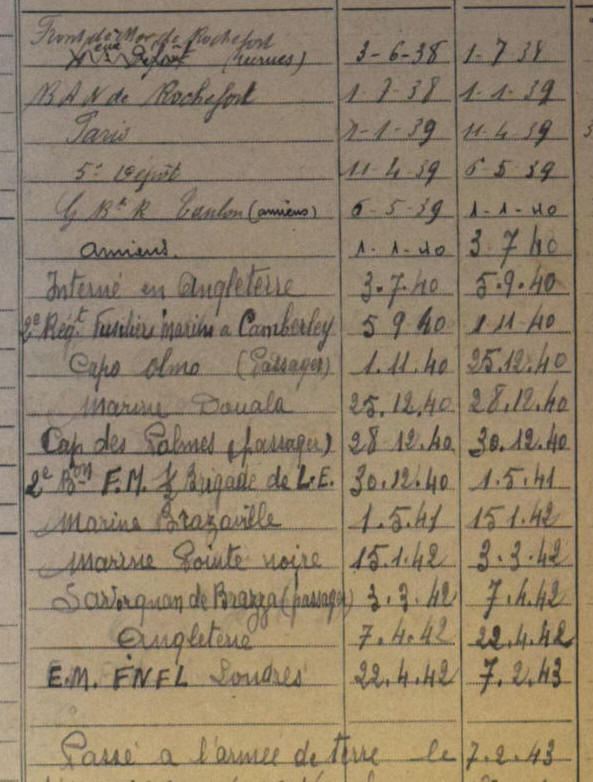 Front de Mer de Rochefort
Dépôt (vivres) 3-6-38 1-7-38
B A N de Rochefort 1-7-38 1-1-39
Paris 1-1-39 11-4-39
5e Dépôt 11-4-39 6-5-39
Toulon (amiens) 6-5-39 1-1-40
amiens. 1-1-40 3.7.40
Interné en Angleterre 3.7.40 5.9.40
2e Régt Fusiliers marins a Camberley 5 9 40 1 11 40
Capo Olmo (Passager) 1.11.40 25.12.40
Marine Douala 25.12.40 28.12.40
Cap des Palmes (passager) 28 12.40 30.12.40
2e Bon F.M. ½ Brigade de L.E. 30.12.40 1.5.41
Marine Brazaville 1.5.41 15 1.42
Marine Pointe noire 15.1.42 3.3.42
Savorgnan de Brazza (passager) 3.3.42 7.4.42
Angleterre 7.4.42 22.4.42
E.M. FNFL Londres 22.4.42 7.2.43
Passé a l'armée de terre le 7.2.43